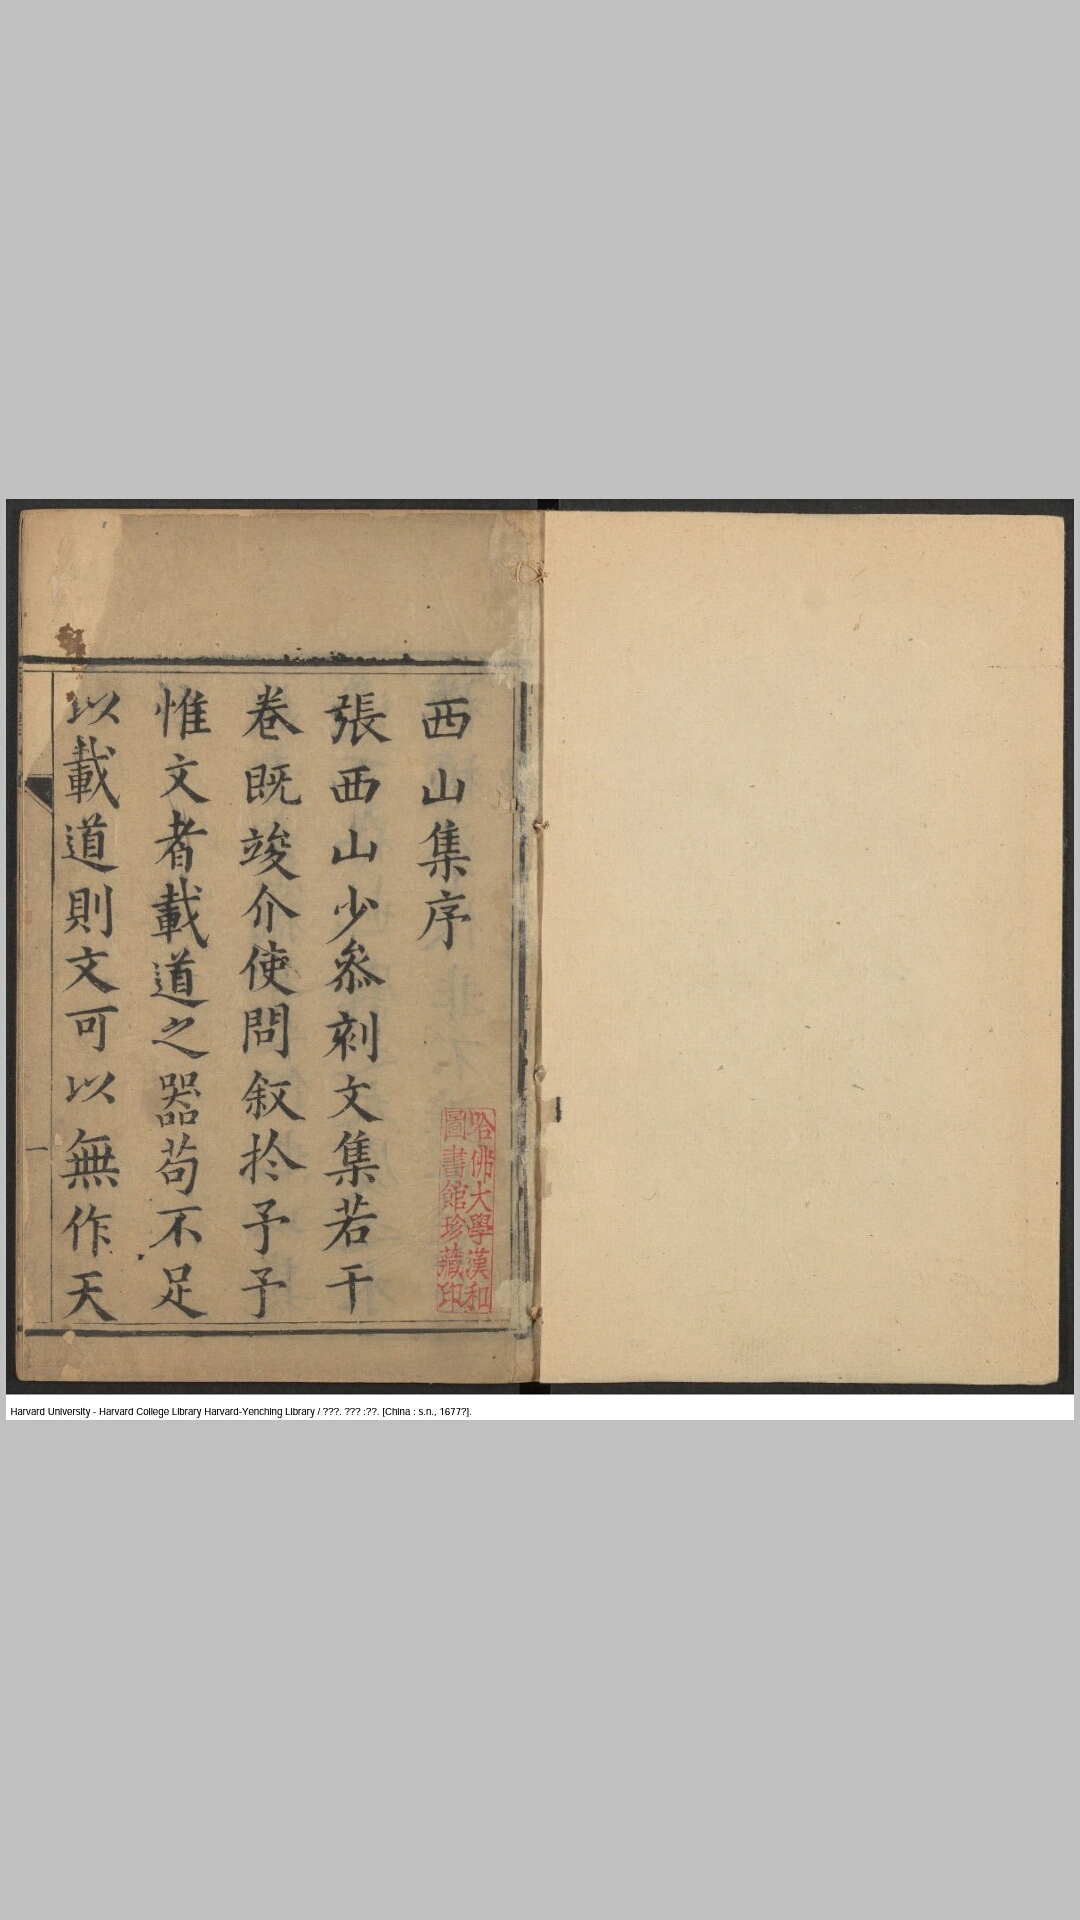 西山集序
張西山少叅刻文集若干
卷既竣介使問叙扵予予
惟文者載道之器苟不足
以載道則文可以無作天
一
哈佛大學漢和
圖書館珍藏印
Harvard University - Harvard College Library Harvard-Yenching Library / ???. ??? :??. [China : s.n., 1677?].